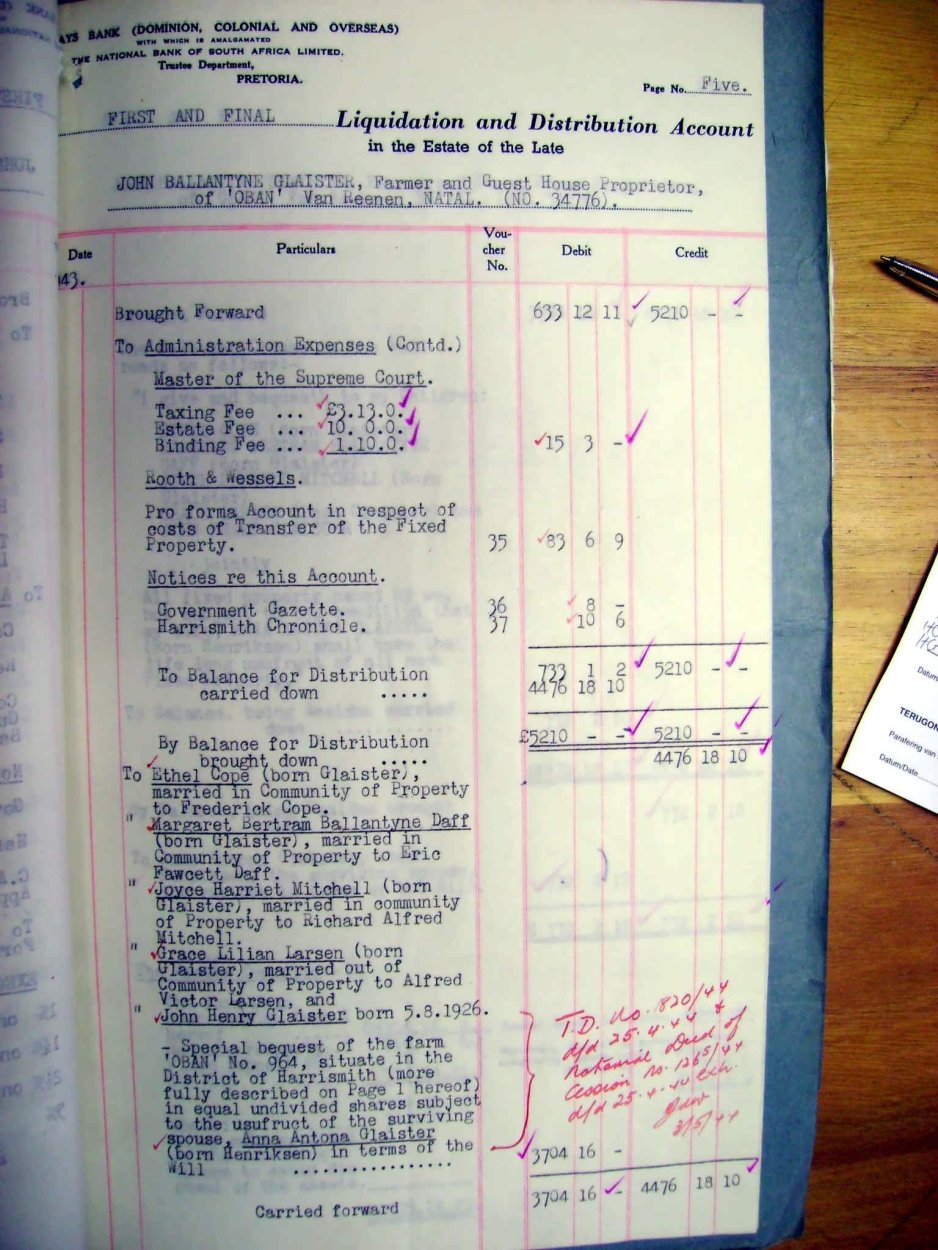 AYS BANK (DOMINION, COLONIAL AND OVERSEAS)
WITH WHICH IS AMALGAMATED
THE NATIONAL BANK OF SOUTH AFRICA LIMITED.
Trustee Department,
PRETORIA.
Page No. Five.
FIRST AND FINAL Liquidation and Distribution Account
in the Estate of the Late
JOHN BALLANTYNE GLAISTER, Farmer and Guest House Proprietor,
of 'OBAN' Van Reenen, NATAL. (NO. 34776).
Date Particulars Voucher No. Debit Credit
943.
Brought Forward 633 12 11 5210 - -
To Administration Expenses (Contd.)
Master of the Supreme Court.
Taxing Fee ... £3.13.0.
Estate Fee ... 10. 0.0.
Binding Fee ... 1.10.0. 15 3 -
Rooth & Wessels.
Pro forma Account in respect of
costs of Transfer of the Fixed
Property. 35 83 6 9
Notices re this Account.
Government Gazette. 36 8 -
Harrismith Chronicle. 37 10 6
To Balance for Distribution 733 1 2 5210 - -
carried down ..... 4476 18 10
£5210 - - 5210 - -
By Balance for Distribution
brought down ..... 4476 18 10
To Ethel Cope (born Glaister),
married in Community of Property
to Frederick Cope.
" Margaret Bertram Ballantyne Daff
(born Glaister), married in
Community of Property to Eric
Fawcett Daff.
" Joyce Harriet Mitchell (born
Glaister), married in community
of Property to Richard Alfred
Mitchell.
" Grace Lilian Larsen (born
Glaister), married out of
Community of Property to Alfred
Victor Larsen, and
" John Henry Glaister born 5.8.1926.
- Special bequest of the farm
'OBAN' No. 964, situate in the
District of Harrismith (more
fully described on Page 1 hereof)
in equal undivided shares subject
to the usufruct of the surviving
spouse, Anna Antona Glaister
(born Henriksen) in terms of the
Will .................. 3704 16 -
T.D. No. 820/44
d/d 25.4.44 &
Notarial Deed of
Cession No. 1265/44
d/d 25.4.44
3/5/44
3704 16 - 4476 18 10
Carried forward
Datum
TERUGON
Parafering van
Datum/Date